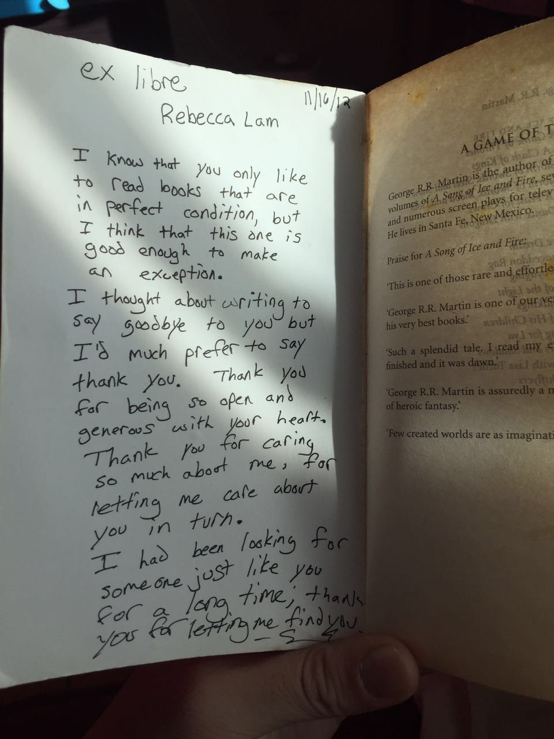 ex libre
11/16/12
Rebecca Lam
I know that you only like
to read books that are
in perfect condition, but
I think that this one is
good enough to make
an exception.
I thought about writing to
say goodbye to you but
I'd much prefer to say
thank you. Thank you
for being so open and
generous with your heart.
Thank you for caring
so much about me, for
letting me care about
you in turn.
I had been looking for
someone just like you
for a long time; thank
you for letting me find you
A GAME OF T
George R.R. Martin is the author of
volumes of A Song of Ice and Fire, sev
and numerous screen plays for telev
He lives in Santa Fe, New Mexico.
Praise for A Song of Ice and Fire:
'This is one of those rare and effortle
'George R.R. Martin is one of our ve
his very best books.'
'Such a splendid tale. I read my e
finished and it was dawn.'
'George R.R. Martin is assuredly a n
of heroic fantasy.'
'Few created worlds are as imaginati